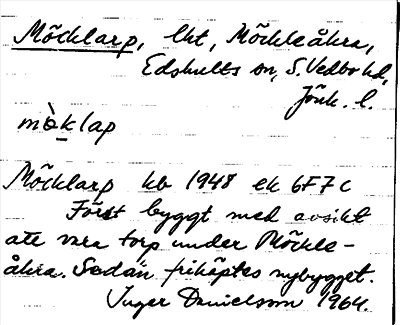 Möcklarp, lht, Möckleåkra,
Edshults sn, S. Vedbo hd,
Jönk. l.
mòklap
Möcklarp kb 1948 ek 6F7c
Först byggt med avsikt
att vara torp under Möckle-
åkra. Sedan friköptes nybygget.
Inger Danielsson 1964.